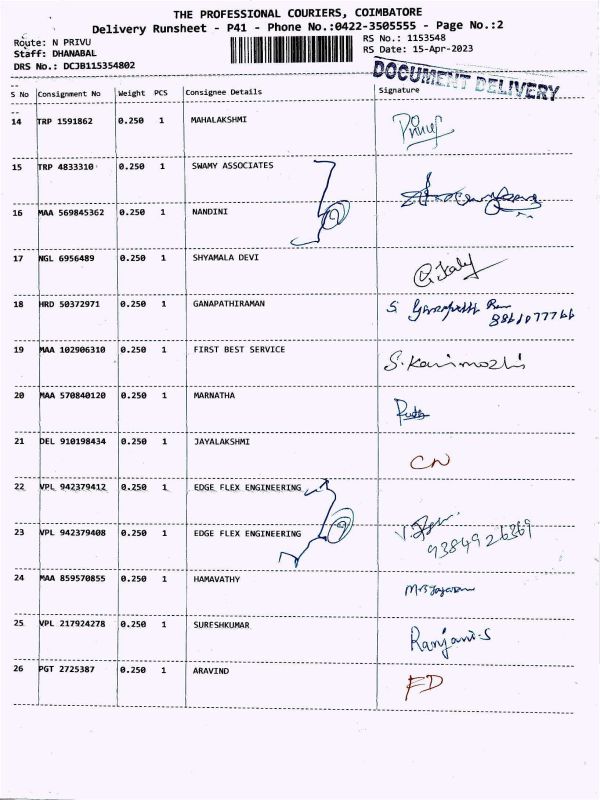 THE PROFESSIONAL COURIERS, COIMBATORE
Delivery Runsheet - P41 - Phone No.:0422-3505555 - Page No.:2
Route: N PRIVU RS No.: 1153548
Staff: DHANABAL RS Date: 15-Apr-2023
DRS No.: DCJB115354802
DOCUMENT DELIVERY
S No Consignment No Weight PCS Consignee Details Signature
14 TRP 1591862 0.250 1 MAHALAKSHMI
15 TRP 4833310 0.250 1 SWAMY ASSOCIATES
16 MAA 569845362 0.250 1 NANDINI
17 NGL 6956489 0.250 1 SHYAMALA DEVI
18 HRD 50372971 0.250 1 GANAPATHIRAMAN S.
19 MAA 102906310 0.250 1 FIRST BEST SERVICE S. Kanimozhi
20 MAA 570840120 0.250 1 MARNATHA
21 DEL 910198434 0.250 1 JAYALAKSHMI CN
22 VPL 942379412 0.250 1 EDGE FLEX ENGINEERING
23 VPL 942379408 0.250 1 EDGE FLEX ENGINEERING 9384926369
24 MAA 859570855 0.250 1 HAMAVATHY
25 VPL 217924278 0.250 1 SURESHKUMAR Ranjani-S
26 PGT 2725387 0.250 1 ARAVIND FD